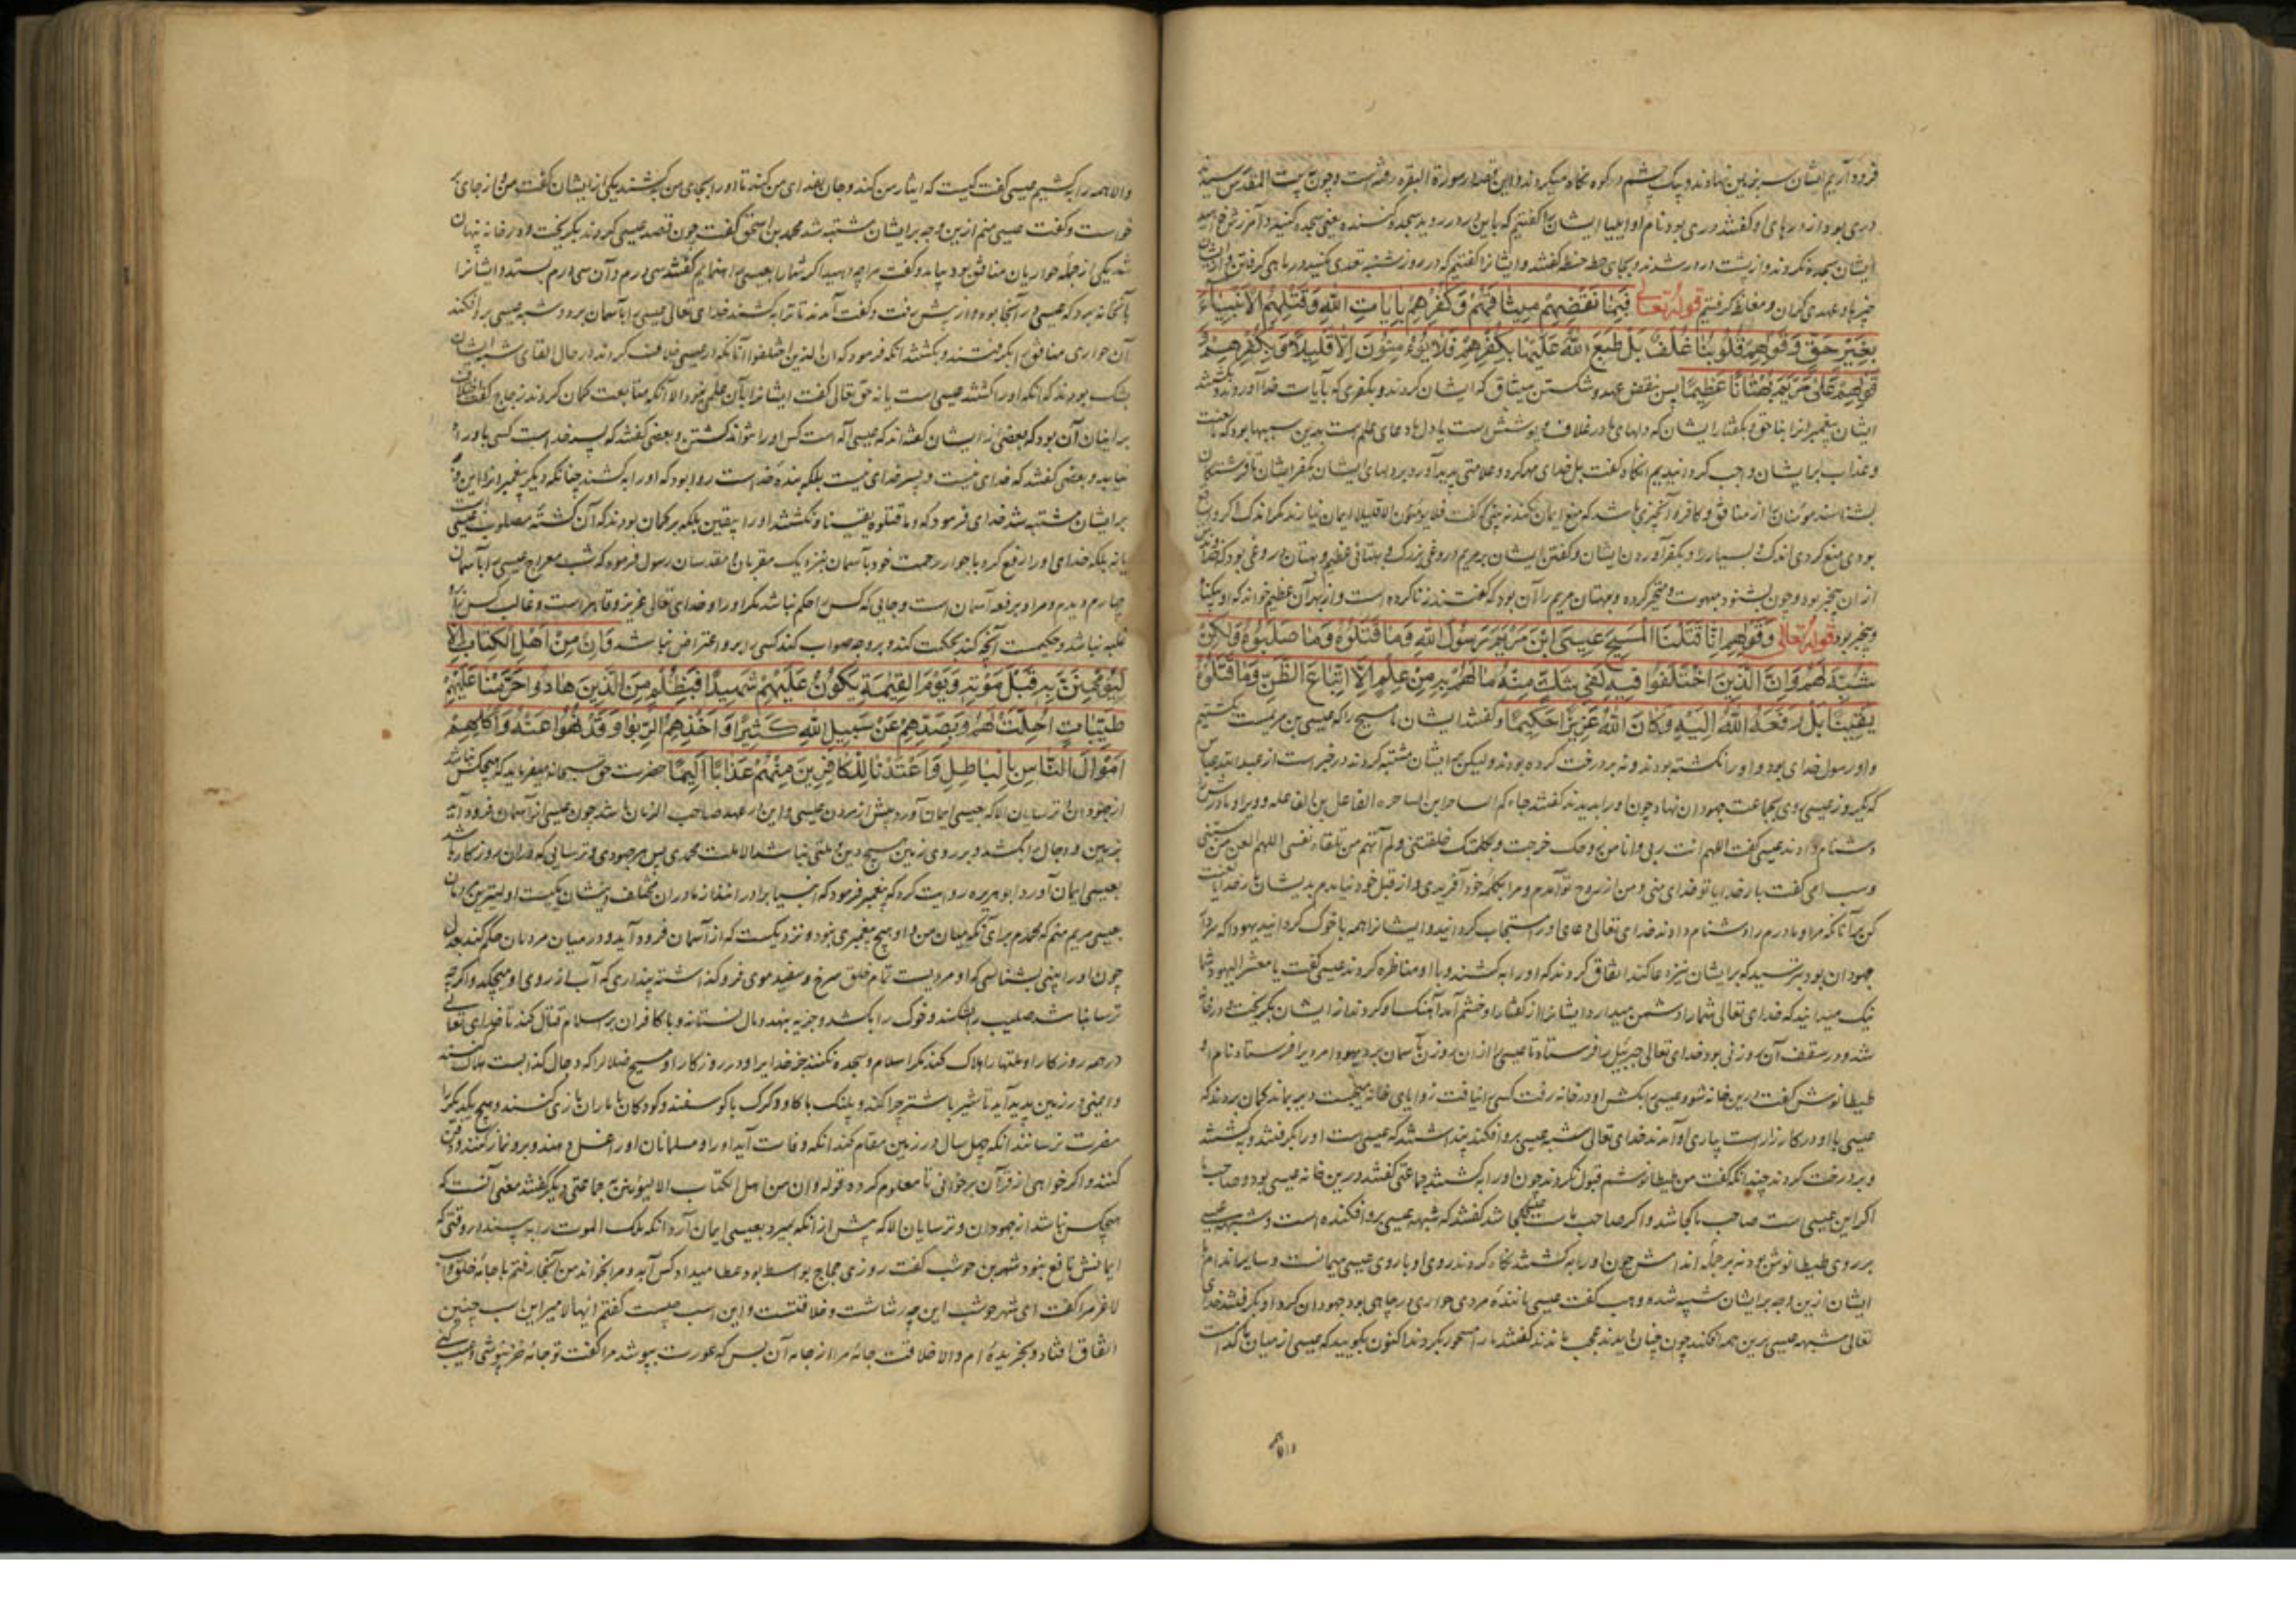 فرود آریم ایشان سر بزمین نهادند و بیک چشم در کوه نگاه میکردند و این قصه در سورة البقره رفته است و چون به بیت المقدس رسیدند
دری بود از درهای او گفتند دری بود نام او ایلیا ایشان را گفتیم که باین در در روید سجده کننده یعنی سجده کنید و آمرزش خواهید
ایشان سجده نکردند و از پشت در در شدند و بجای حطه حنطه گفتند و ایشانرا گفتیم که در روز شنبه تعدی مکنید در ماهی گرفتن و از ایشان
عهدی گران و مغلظ گرفتیم قوله تعالی فَبِمَا نَقْضِهِمْ مِيثَاقَهُمْ وَكُفْرِهِمْ بِآيَاتِ اللهِ وَقَتْلِهِمُ الْأَنْبِيَاءَ
بِغَيْرِ حَقٍّ وَقَوْلِهِمْ قُلُوبُنَا غُلْفٌ بَلْ طَبَعَ اللهُ عَلَيْهَا بِكُفْرِهِمْ فَلَا يُؤْمِنُونَ إِلَّا قَلِيلًا وَبِكُفْرِهِمْ وَ
قَوْلِهِمْ عَلَى مَرْيَمَ بُهْتَانًا عَظِيمًا پس بنقض عهد و شکستن میثاق که ایشان کردند و بکفری که بآیات خدا آوردند و بکشتند
ایشان پیغمبرانرا بناحق و بگفتار ایشان که دلهای ما در غلاف و پوشش است یا دل ما دعای علم است بدین سببها بود که ما لعنت
و عذاب بر ایشان واجب گردانیدیم آنگاه گفت بل خدای مهر کرد و علامتی پدید آورد بر دلهای ایشان بکفر ایشان تا فرشتگان
بشناسند مؤمنان را از منافق و کافر و آن چیزی باشد که منع ایمان نکند نه بینی که گفت فلا یؤمنون الا قلیلا ایمان نیارند مگر اندک و اگر مانع
بودی منع کردی اندک و بسیار را و بکفر آوردن ایشان و گفتن ایشان بر مریم دروغی بزرگ و بهتانی عظیم و بهتان دروغی بود که
از آن بیخبر بود و چون بشنود مبهوت و متحیر گردد و بهتان مریم را آن بود که گفتند زنا کرده است و از بهر آن عظیم خواند که او
بیخبر بود قوله تعالی وَقَوْلِهِمْ إِنَّا قَتَلْنَا الْمَسِيحَ عِيسَى ابْنَ مَرْيَمَ رَسُولَ اللهِ وَمَا قَتَلُوهُ وَمَا صَلَبُوهُ وَلَكِنْ
شُبِّهَ لَهُمْ وَإِنَّ الَّذِينَ اخْتَلَفُوا فِيهِ لَفِي شَكٍّ مِنْهُ مَا لَهُمْ بِهِ مِنْ عِلْمٍ إِلَّا اتِّبَاعَ الظَّنِّ وَمَا قَتَلُوهُ
يَقِينًا بَلْ رَفَعَهُ اللهُ إِلَيْهِ وَكَانَ اللهُ عَزِيزًا حَكِيمًا و گفتند ایشان ما مسیح را که عیسی بن مریمست بکشتیم
و او رسول خدای بود و او را نکشته بودند و نه بر درخت کرده بودند و لیکن بر ایشان مشتبه کردند در خبر است از عبد الله عباس
که یکروز عیسی روی بجماعت جهودان نهاد چون او را بدیدند گفتند جاءکم الساحر ابن الساحره الفاعل بن الفاعله و ویرا و مادرش را
دشنام دادند عیسی گفت اللهم انت ربی و انا من روحک خرجت و بکلمتک خلقتنی و لم آتهم من تلقاء نفسی اللهم العن من سبنی
و سب امی گفت بار خدایا تو خدای منی و من از روح تو آمدم و مرا بکلمه خود آفریدی و از قبل خود نیامدم بدیشان بار خدایا لعنت
کن بر آنانکه مرا و مادرم را دشنام دادند خدای تعالی دعای او را مستجاب گردانید و ایشانرا همه با خوک گردانید یهودا که سردار
جهودان بود بترسید که بر ایشان نیز دعا کند اتفاق کردند که او را بکشند و با او مناظره کردند عیسی گفت یا معشر الیهود شما
نیک میدانید که خدای تعالی شما را دشمن میدارد ایشانرا از گفتار او خشم آمد آهنگ او کردند از ایشان بگریخت و در خانه
شد و در سقف آن روزنی بود خدای تعالی جبرئیل را فرستاد تا عیسی را از آن روزن بآسمان برد یهودا مردیرا فرستاد نام او
طیطانوش گفت درین خانه شو و عیسی را بکش او در خانه رفت کسی را نیافت زوایای خانه میجست دیر بماند گمان بردند که
عیسی با او در کارزار است بیاری او آمدند خدای تعالی شبه عیسی برو افکند پنداشتند که عیسی است او را بگرفتند و بکشتند
و بر درخت کردند چندانکه گفت من طیطانوشم قبول نکردند چون او را بکشتند جماعتی گفتند درین خانه عیسی بود و صاحب ما
اگر این عیسی است صاحب ما کجا شد و اگر صاحب ماست عیسی کجا شد گفتند که شبهه عیسی برو افکنده است و شبهه عیسی
بر روی طیطانوش بود نه بر جمله اندامش چون او را بکشتند نگاه کردند روی او با روی عیسی میمانست و سایر اندام با
ایشان ازین وجه بر ایشان شبیه شد و وهب گفت عیسی با نوزده مردی حواری در جایی بود جهودان گرد او بگرفتند خدای
تعالی شبهه عیسی برین همه افکند چون چنان دیدند عجب ماندند گفتند ما را مسحور بکردند اکنون بگویید که عیسی از میان ما کدام است
والا همه را بکشیم عیسی گفت کیست که ایثار من کند و جان فدای من کند تا او را بجای من بکشند یکی از ایشان گفت من و از جای
خواست و گفت عیسی منم ازین وجه بر ایشان مشتبه شد محمد بن اسحق گفت چون قصد عیسی کردند بگریخت و در خانه پنهان
شد یکی از جمله حواریان منافق بود بیامد و گفت مرا چه دهید اگر شما را بعیسی راهنمایم گفتند سی درم و آن سی درم بستد و ایشانرا
بآنخانه برد که عیسی در آنجا بود و از پیش برفت و گفت آمدند تا ترا بکشند خدای تعالی عیسی را بآسمان برد و شبه عیسی بر افکند
آن حواری منافق را بگرفتند و بکشتند آنکه فرمود که ان الذین اختلفوا آنانکه در عیسی خلاف کردند در حال القای شبه ایشان
بشک بودند که آنکه او را کشتند عیسی است یا نه حق تعالی گفت ایشانرا بآن علمی نبود الا آنکه متابعت گمان کردند زجاج گفت خلاف
بر ایشان آن بود که بعضی از ایشان گفته‌اند که عیسی اله است کس او را نتواند کشتن و بعضی گفتند که پسر خداست کسی باو راه
نیابد و بعضی گفتند که خدای نیست و پسر خدای نیست بلکه بنده خداست روا بود که او را بکشند چنانکه دیگر پیغمبرانرا این
بر ایشان مشتبه شد خدای فرمود که و ما قتلوه یقینا و نکشتند او را بیقین بلکه بر گمان بودند که آن کشته مصلوب عیسی است
یا نه بلکه خدای او را رفع کرد با جوار رحمت خود بآسمان بنزدیک مقربان و مقدسان رسول فرمود که شب معراج عیسی را بآسمان
چهارم دیدم و مراد برفعه آسمان است و جایی که کس را حکم نباشد مگر او را و خدای تعالی عزیز و قاهر است و غالب کس را برو
غلبه نباشد و حکیمست آنچه کند بحکمت کند و بر وجه صواب کند کسی را برو اعتراض نباشد وَإِنْ مِنْ أَهْلِ الْكِتَابِ إِلَّا
لَيُؤْمِنَنَّ بِهِ قَبْلَ مَوْتِهِ وَيَوْمَ الْقِيمَةِ يَكُونُ عَلَيْهِمْ شَهِيدًا فَبِظُلْمٍ مِنَ الَّذِينَ هَادُوا حَرَّمْنَا عَلَيْهِمْ
طَيِّبَاتٍ أُحِلَّتْ لَهُمْ وَبِصَدِّهِمْ عَنْ سَبِيلِ اللهِ كَثِيرًا وَأَخْذِهِمُ الرِّبَوا وَقَدْ نُهُوا عَنْهُ وَأَكْلِهِمْ
أَمْوَالَ النَّاسِ بِالْبَاطِلِ وَأَعْتَدْنَا لِلْكَافِرِينَ مِنْهُمْ عَذَابًا أَلِيمًا حضرت حق سبحانه میفرماید که هیچکس نباشد
از جهودان و ترسایان الا که بعیسی ایمان آورد پیش از مردن عیسی و این در عهد صاحب الزمان باشد چون عیسی از آسمان فرود آید
بزمین و دجال را بکشد و بر روی زمین هیچ دین و ملتی نباشد الا ملت محمدی پس هر جهودی و ترسایی که در آن روزگار باشد
بعیسی ایمان آورد ابو هریره روایت کرد که پیغمبر فرمود که انبیا برادرانند از مادران مختلف دینشان یکیست اولیترین مردمان
بعیسی مریم منم که محمدم برای آنکه میان من و او هیچ پیغمبری نبود و نزدیکست که از آسمان فرود آید و در میان مردمان حکم کند بعدل
چون او را ببینی بشناسی که او مردیست تمام خلق سرخ و سفید موی فروگذاشته پنداری که آب از روی او میچکد و اگرچه
تر نباشد صلیب را بشکند و خوک را بکشد و جزیه بنهد و مال نستاند و با کافران بر اسلام قتال کند تا خدای تعالی
در همه روزگار او ملتها را هلاک کند مگر اسلام و سجده نکنند جز خدایرا و در روزگار او مسیح ضلالرا که دجال کذابست هلاک کند
و ایمنی در زمین پدید آید تا شیر با شتر چرا کند و پلنگ با گاو و گرگ با گوسفند و کودکان با ماران بازی کنند و هیچ یکدیگر را
مضرت نرسانند آنکه چهل سال در زمین مقام کند آنکه وفات آید او را و مسلمانان او را غسل دهند و برو نماز کنند و دفن
کنند و اگر خواهی از قرآن برخوانی تا معلوم گردد قوله و ان من اهل الکتاب الا لیؤمنن به جماعتی دیگر گفتند معنی آنست که
هیچکس نباشد از جهودان و ترسایان الا که پیش از آنکه بمیرد بعیسی ایمان آرد آنکه ملک الموت را به بیند در وقتی که
ایمانش نافع نبود شهر بن حوشب گفت روزی حجاج بواسط بود عطا میداد کس آمد و مرا بخواند من آنجا رفتم با جامه خلق و اسب
لاغر مرا گفت ای شهر حوشب این چه رثاثت و خلاقتست و این اسب چیست گفتم ایها الامیر این اسب چنین
اتفاق افتاد و بخریده‌ام و الا خلاقت جامه مرا از جامه آن بس که عورت بپوشد مرا گفت تو جامه خز نپوشی و عیب کنی